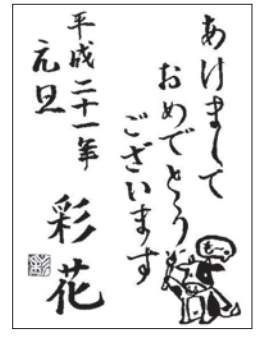 あけまして
おめでとう
ございます
も～
平成二十一年
元旦
彩花